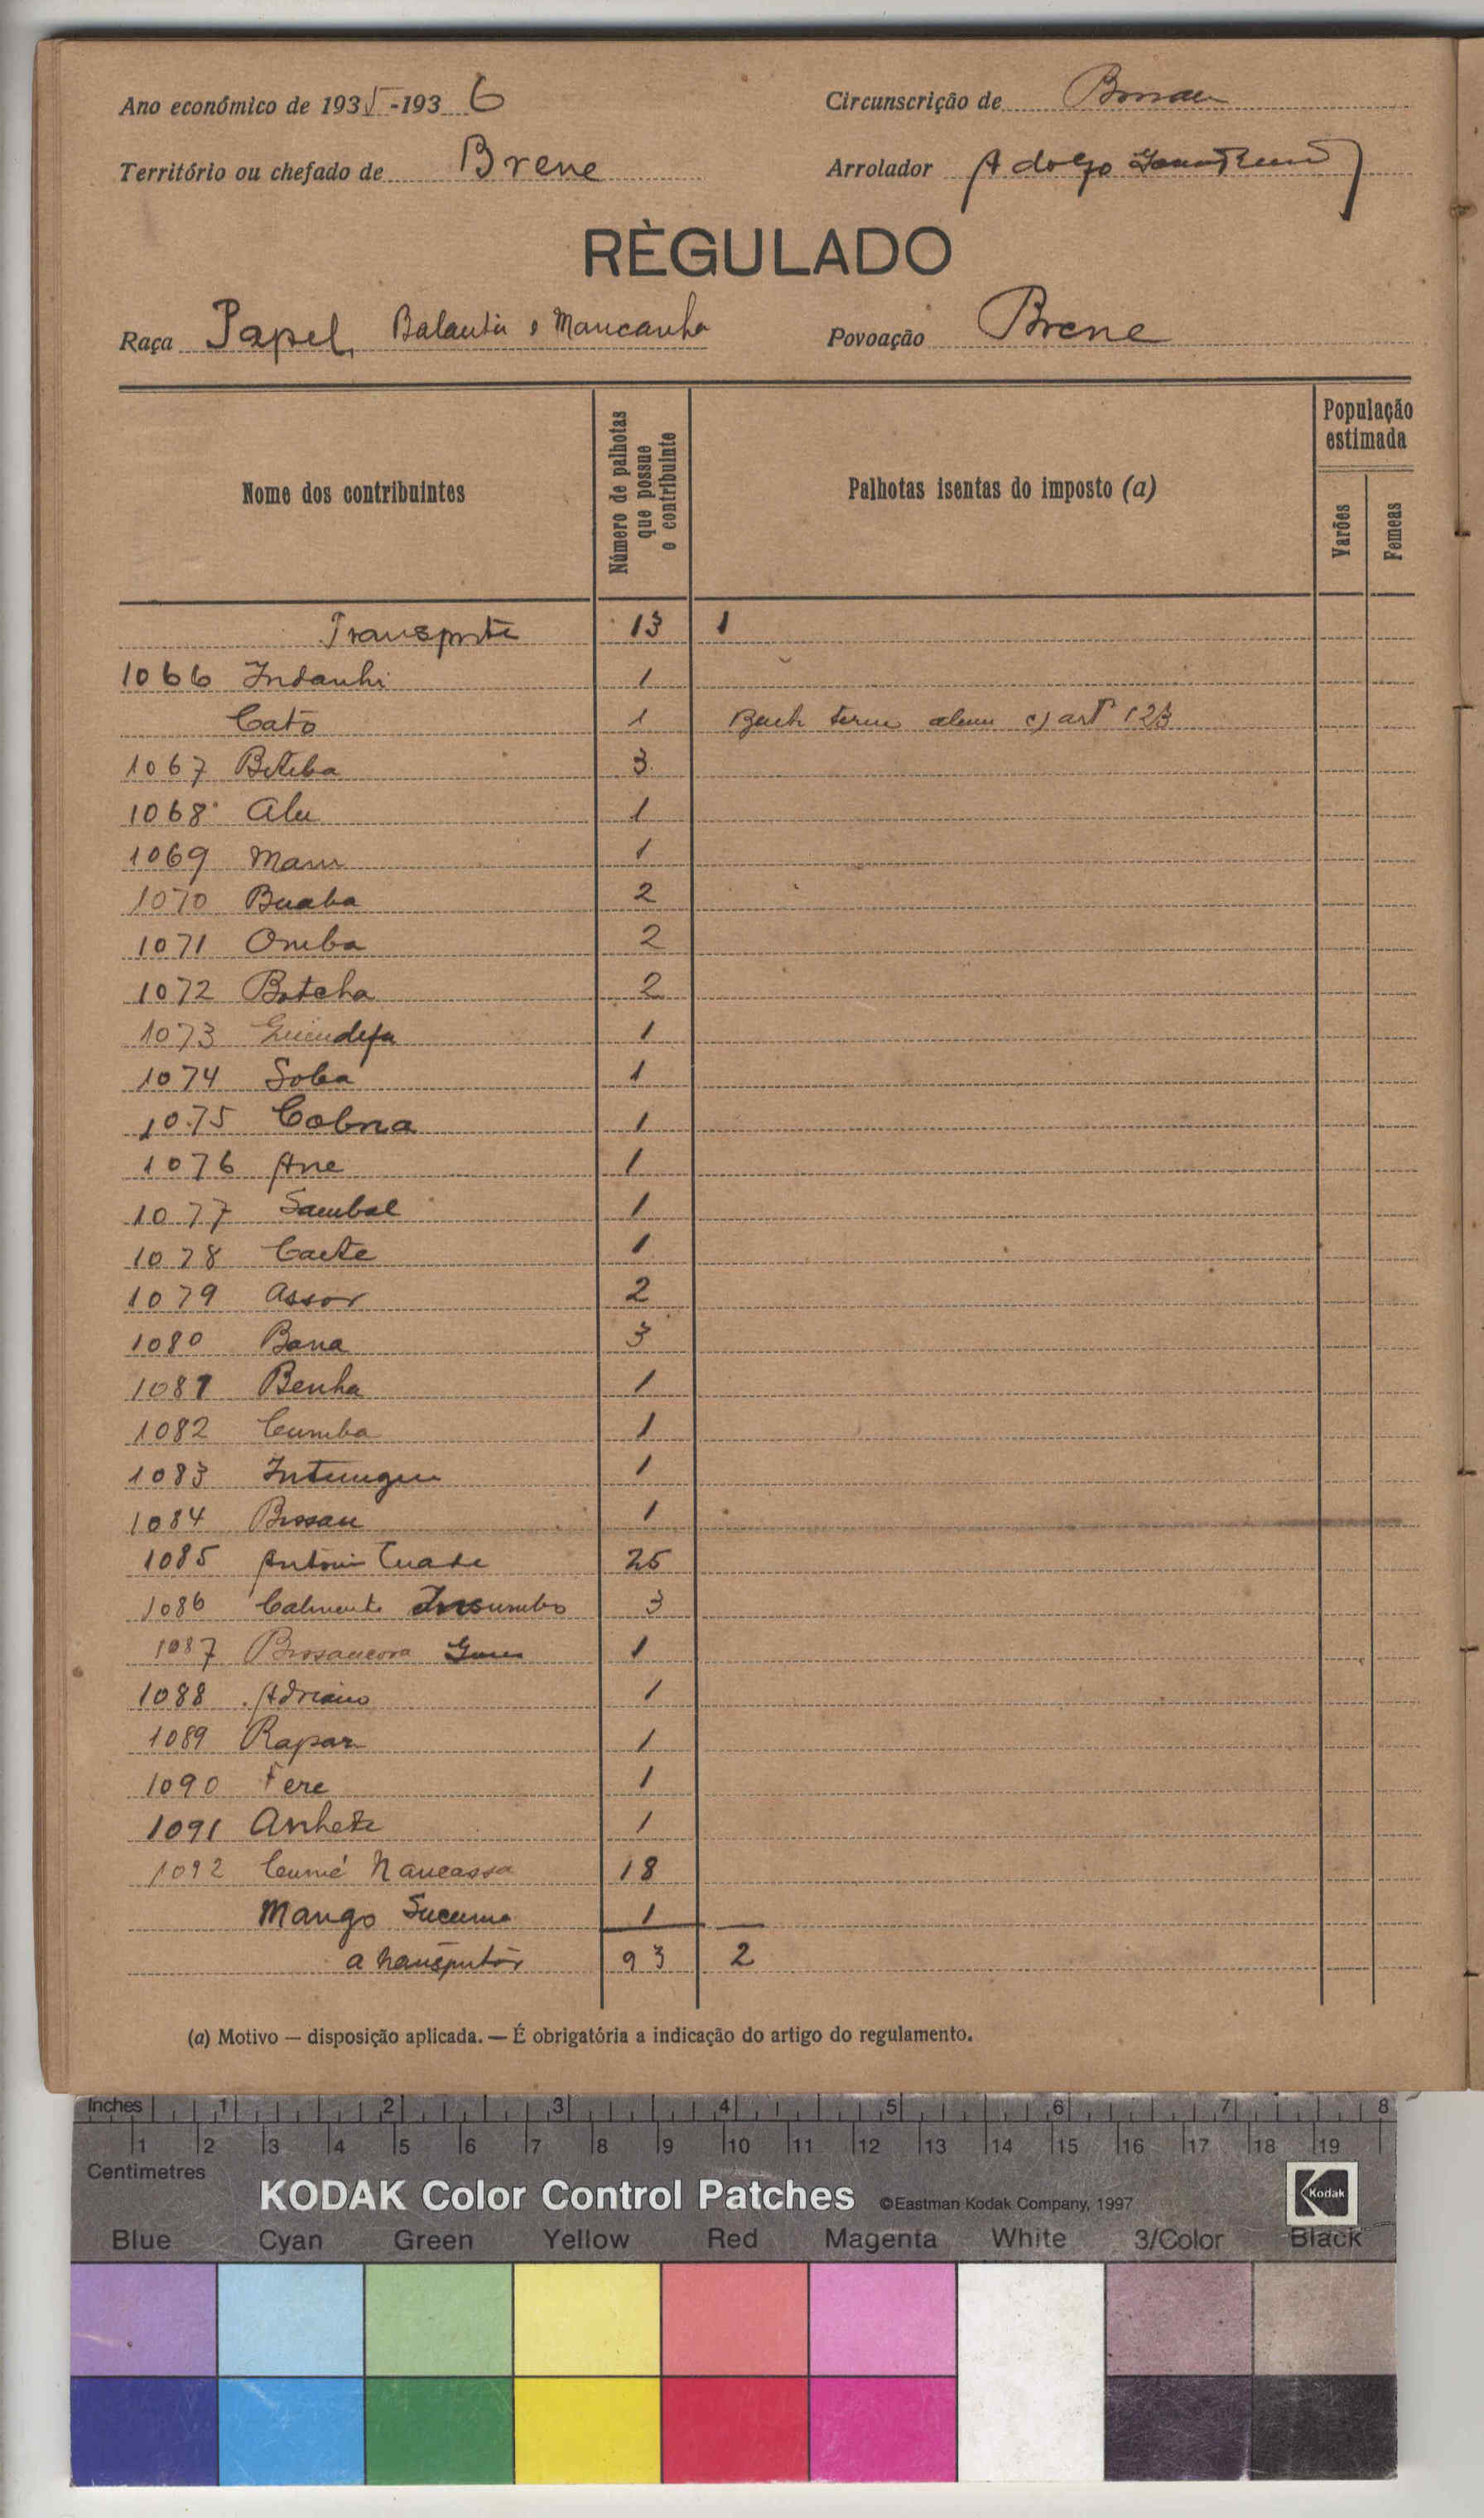 Ano económico de 1935-1936
Circunscrição de Bissau
Território ou chefado de Brene
Arrolador Adolfo
RÈGULADO
Raça Papel, Balanta e Mancanha
Povoação Brene
Nome dos contribuintes
Número de palhotas que possue o contribuinte
Palhotas isentas do imposto (a)
População estimada
Varões
Femeas
Transporte 13 1
1066 Indanhi 1
Cató 1 c) artº 123
1067 Biteba 3
1068 Alu 1
1069 1
1070 Buaba 2
1071 Omba 2
1072 Botcha 2
1073 1
1074 Soba 1
1075 Cobna 1
1076 Ane 1
1077 Sambal 1
1078 Caete 1
1079 Assor 2
1080 Bana 3
1081 Benha 1
1082 Cumba 1
1083 Intungu 1
1084 Bissau 1
1085 António Cuade 25
1086 3
1087 1
1088 Adriano 1
1089 Rapaz 1
1090 Fere 1
1091 Anhete 1
1092 Cumé Nancassa 18
Mango Sucuma 1
a transportar 93 2
(a) Motivo — disposição aplicada. — É obrigatória a indicação do artigo do regulamento.
Inches 1 2 3 4 5 6 7 8
1 2 3 4 5 6 7 8 9 10 11 12 13 14 15 16 17 18 19
Centimetres
KODAK Color Control Patches ©Eastman Kodak Company, 1997 Kodak
Blue Cyan Green Yellow Red Magenta White 3/Color Black